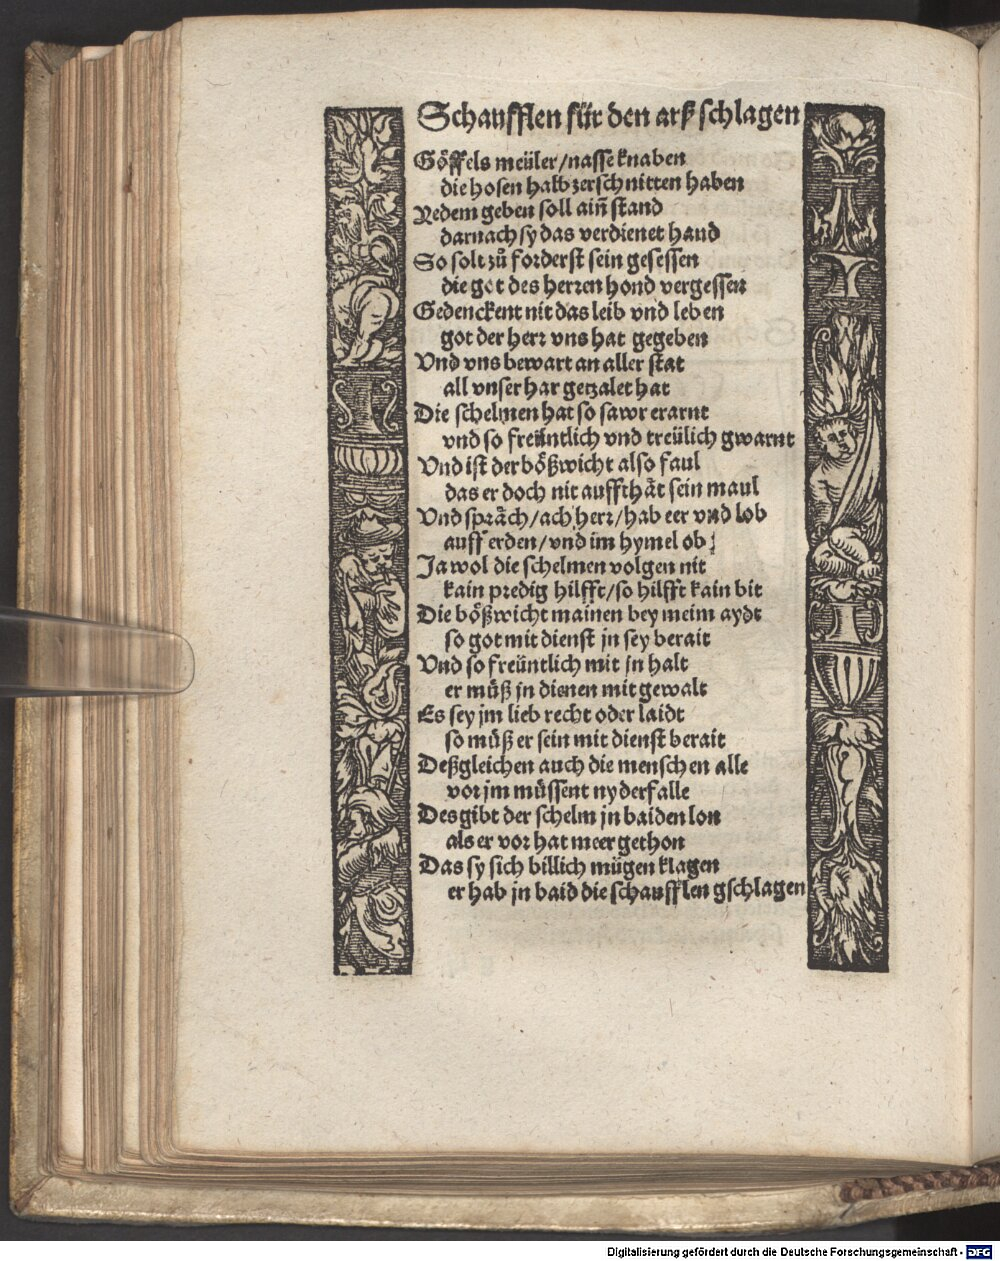 Schaufflen für den arß schlagen
Göffels meüler/nasse knaben
die hosen halb zerschnitten haben
Yedem geben soll ain̄ stand
darnach sy das verdienet hand
So solt zů forderst sein gesessen
die got des herren hond vergessen
Gedenckent nit das leib vnd leben
got der herr vns hat gegeben
Vnd vns bewart an aller stat
all vnser har getzalet hat
Die schelmen hat so sawr erarnt
vnd so freüntlich vnd treülich gwarnt
Vnd ist der bößwicht also faul
das er doch nit auffthät sein maul
Vnd spräch/ach herr/hab eer vnd lob
auff erden/vnd im hymel ob
Ja wol die schelmen volgen nit
kain predig hilfft/so hilfft kain bit
Die bößwicht mainen bey meim aydt
so got mit dienst jn sey berait
Vnd so freüntlich mit jn halt
er müß jn dienen mit gewalt
Es sey jm lieb recht oder laidt
so müß er sein mit dienst berait
Deßgleichen auch die menschen alle
vor jm müssent nyderfalle
Des gibt der schelm jn baiden lon
als er vor hat meer gethon
Das sy sich billich mügen klagen
er hab jn baid die schaufflen gschlagen
Digitalisierung gefördert durch die Deutsche Forschungsgemeinschaft - DFG